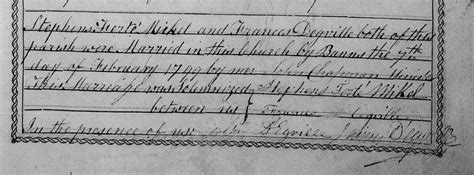 Stephens Forté Mikel and Frances Degville both of this
parish were Married in this Church by Banns the 7th
day of February 1799 by me John Chapman Minister
This Marriage was Solemnized Stephens Forté Mikel
between us { Frances Degville
In the presence of us Degville James Degville